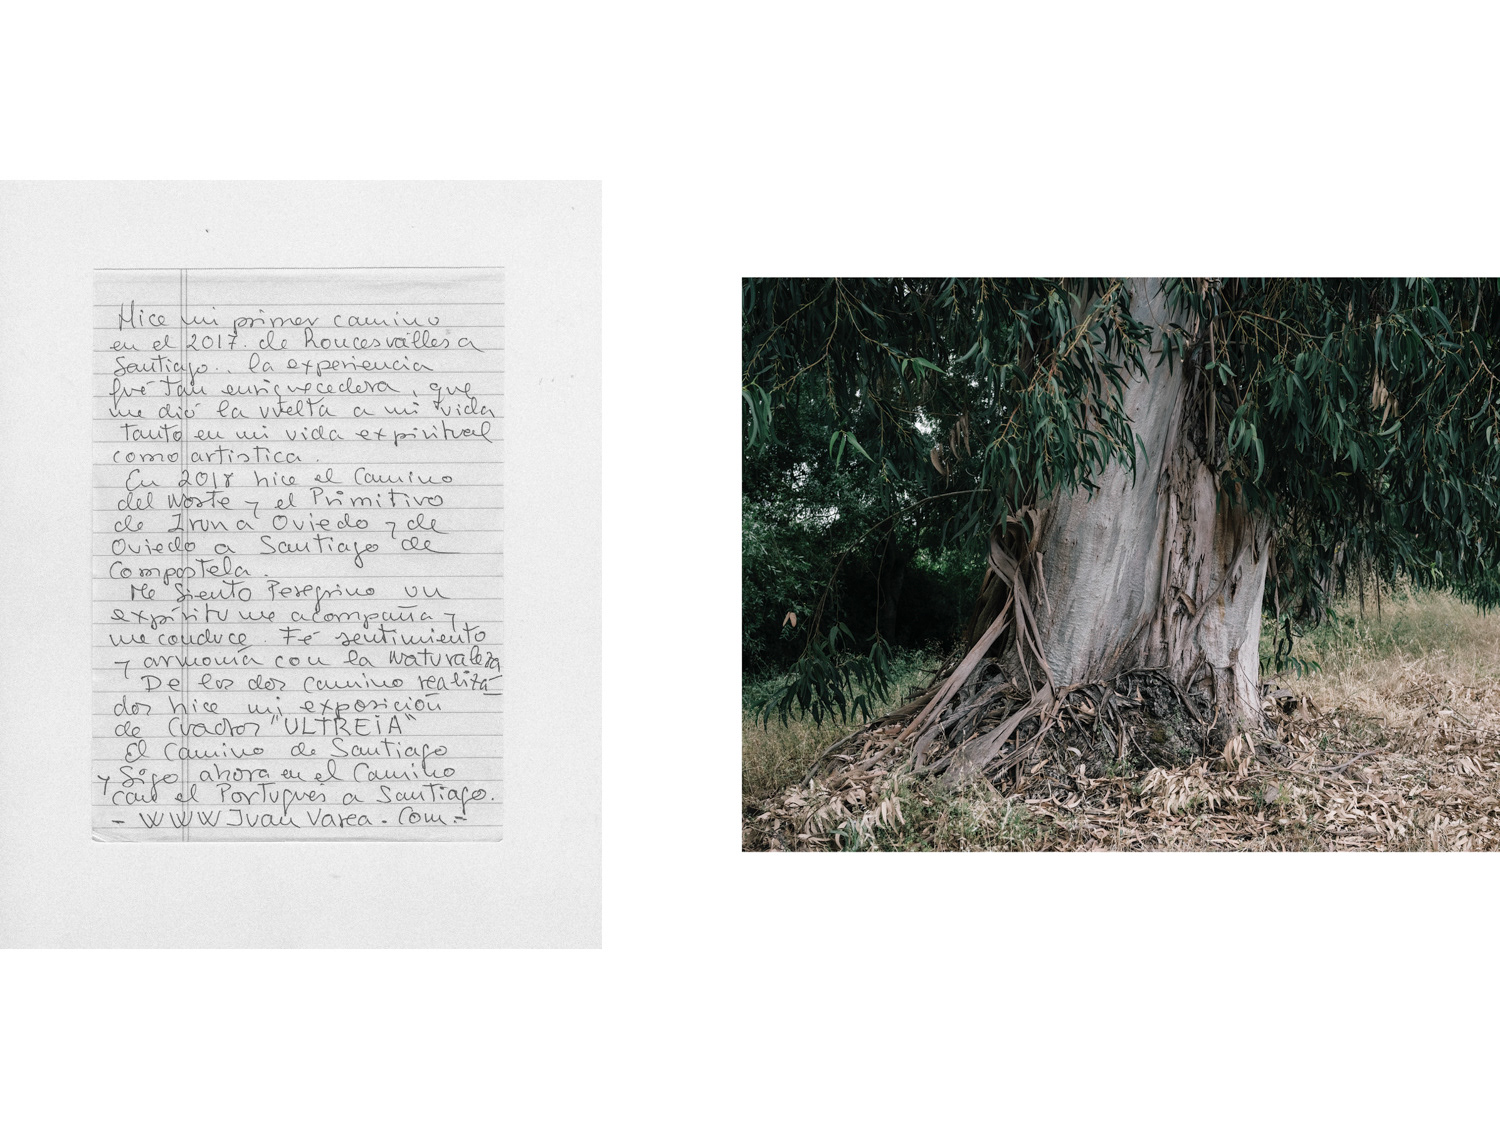 Hice mi primer camino
en el 2017. de Roncesvalles a
Santiago.. la experiencia
fué tan enriquecedora, que
me dió la vuelta a mi vida
tanto en mi vida expiritual
como artistica.
En 2018 hice el Camino
del Norte y el Primitivo
de Irun a Oviedo y de
Oviedo a Santiago de
Compostela.
Me Siento Peregrino un
expíritu me acompaña y
me conduce. Fé sentimiento
y armonía con la Naturaleza
De los dos Camino realizá
dos hice mi exposición
de Cuadros "ULTREIA"
El Camino de Santiago
y Sigo ahora en el Camino
con el Portugués a Santiago.
- WWW Juan Varea. Com.-